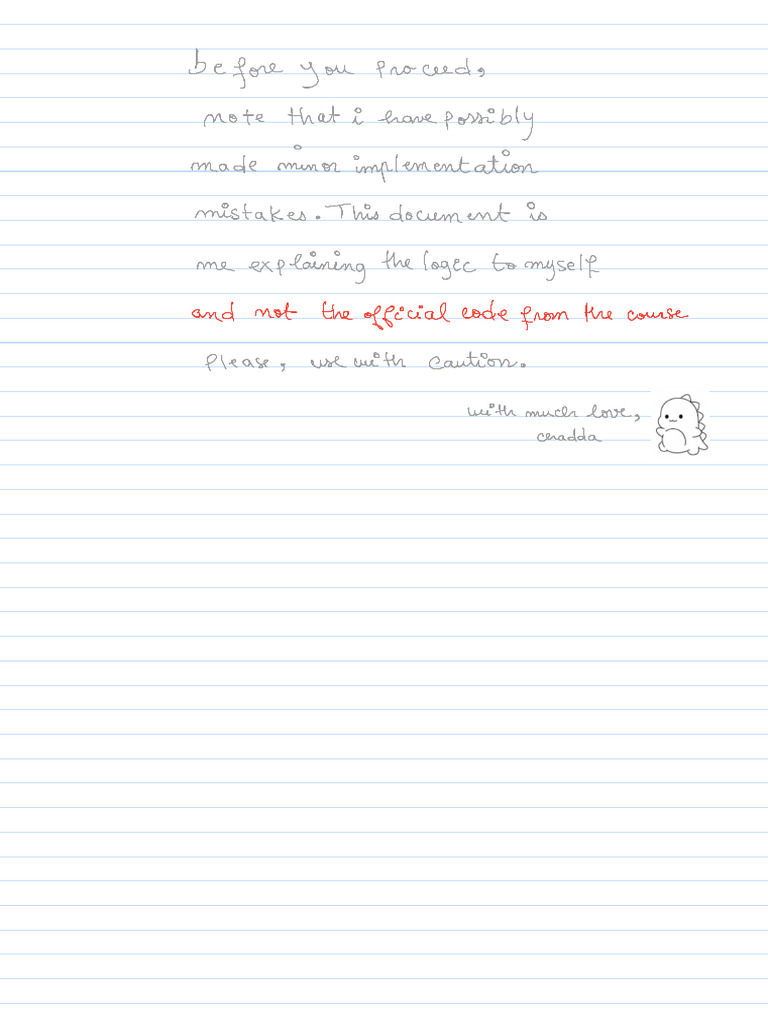 before you proceed,
note that i have possibly
made minor implementation
mistakes. This document is
me explaining the logic to myself
and not the official code from the course
please, use with caution.
with much love,
cradda